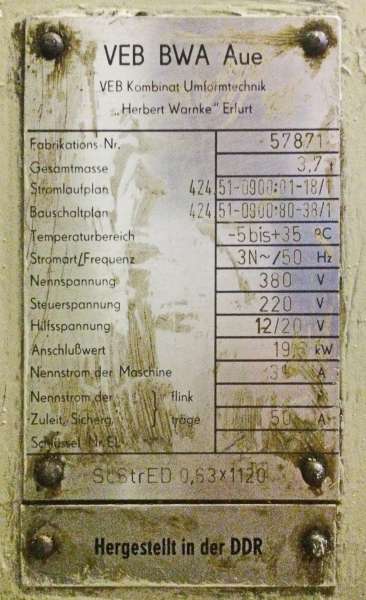 VEB BWA Aue
VEB Kombinat Umformtechnik
„Herbert Warnke" Erfurt
Fabrikations Nr. 57871
Gesamtmasse 3,7
Stromlaufplan 424 51-0900:01-18/1
Bauschaltplan 424 51-0900:80-38/1
Temperaturbereich -5bis+35 °C
Stromart/Frequenz 3N~/50 Hz
Nennspannung 380 V
Steuerspannung 220 V
Hilfsspannung 12/20 V
Anschlußwert kW
Nennstrom der Maschine A
Nennstrom der flink
Zuleit. Sicherg. träge 50 A
Schlüssel Nr. EL
0,63x1120
Hergestellt in der DDR